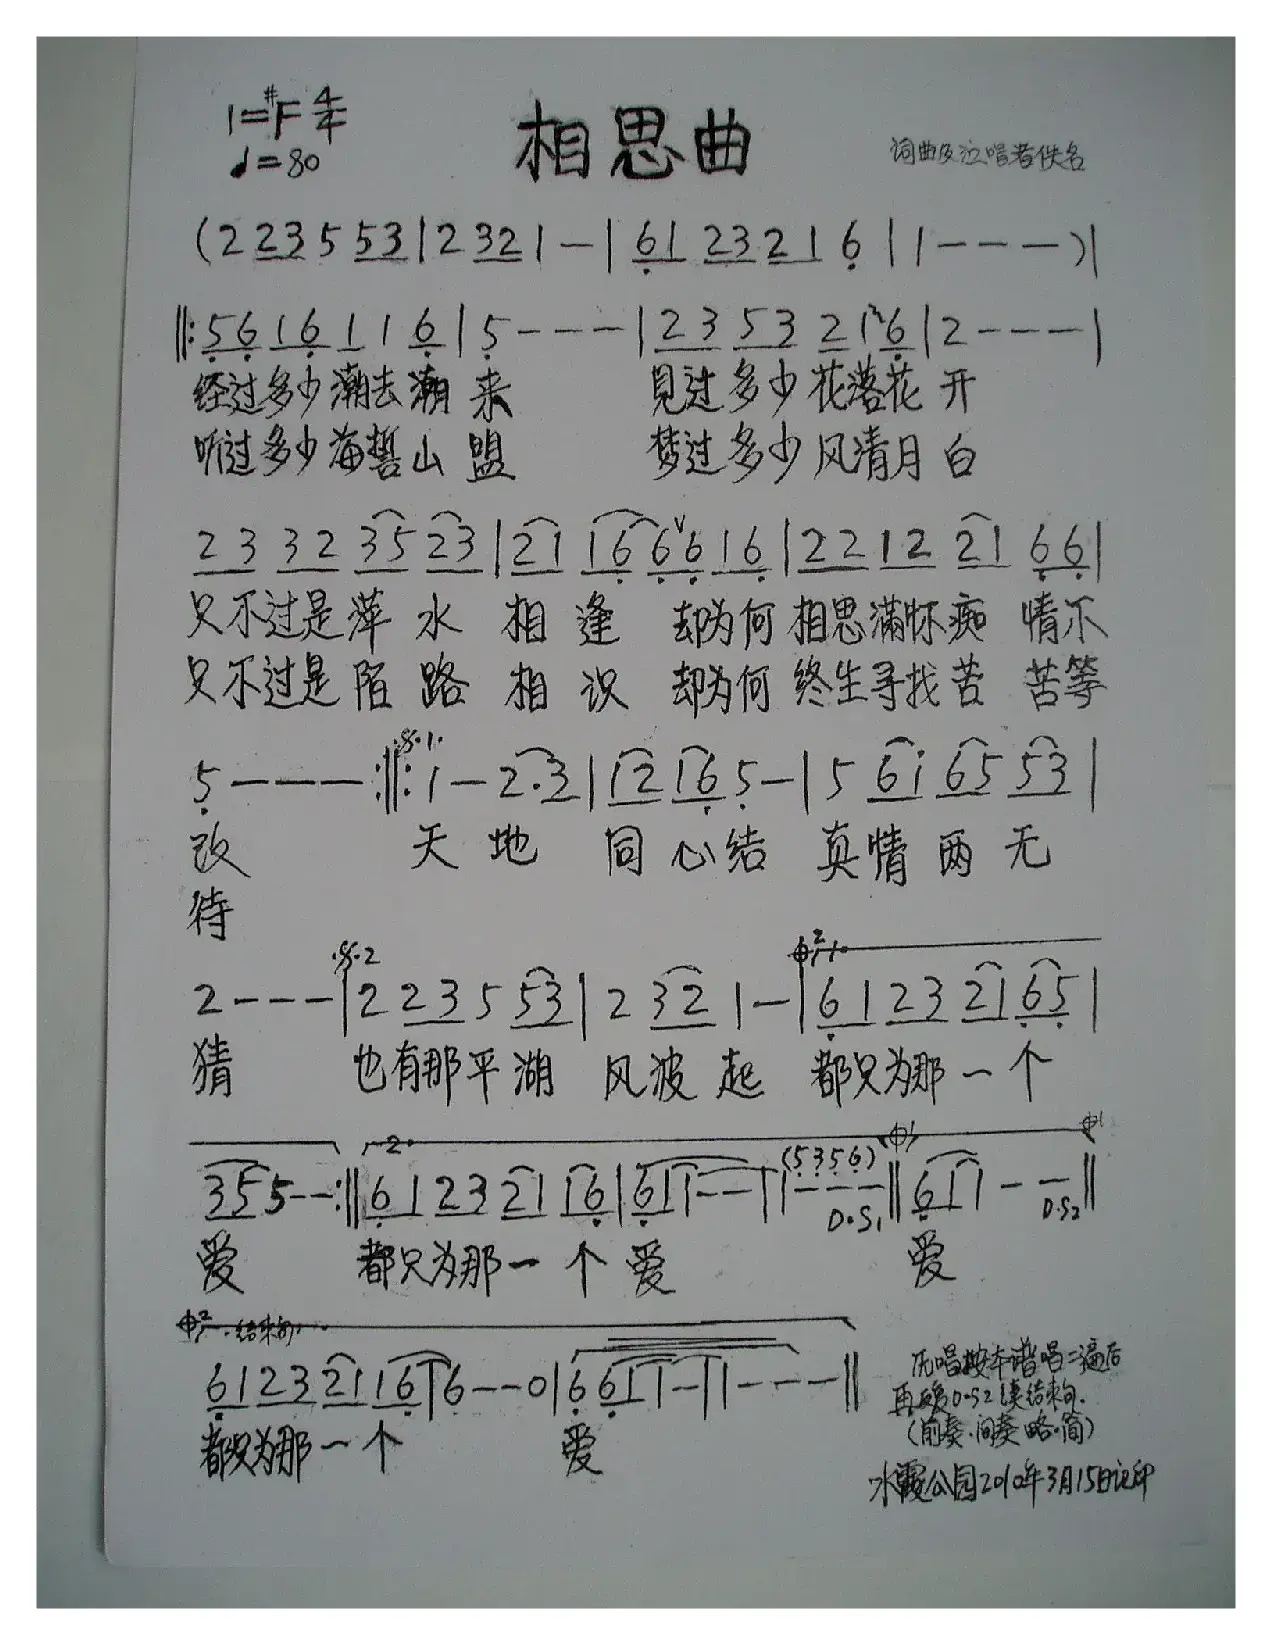 1=#F 4/4
♩=80
相思曲
词曲及泣唱者佚名
(2 23 5 53|2 32 1 —|61 23 21 6|1 — — —)|
‖: 56 16 1 1 6|5 — — —|23 53 21 6|2 — — —|
经过多少潮去潮来 见过多少花落花开
听过多少海誓山盟 梦过多少风清月白
23 32 35 23|21 16 6∨6 16|22 12 21 66|
只不过是萍水相逢 却为何相思满怀痴情不
只不过是陌路相识 却为何终生寻找苦苦等
5 — — — :‖: 1 — 2·3|12 16 5 —|5 61 65 53|
改 天地同心结 真情两无
待
2 — — —|2 23 5 53|2 32 1 —|61 23 21 65|
猜 也有那平湖风波起 都只为那一个
35 5 — — :‖ 61 23 21 16|61 1 — —|1 — — —‖61 1 — —‖
(5356) D.S1 D.S2
爱 都只为那一个爱 爱
结束句
61 23 21 16|6 — — 0|6 61 1 —|1 — — —‖
都只为那一个 爱
唱按本谱唱二遍后
再 D.S2 结束句.
(前奏.间奏略.简)
水霞公园2010年3月15日记印